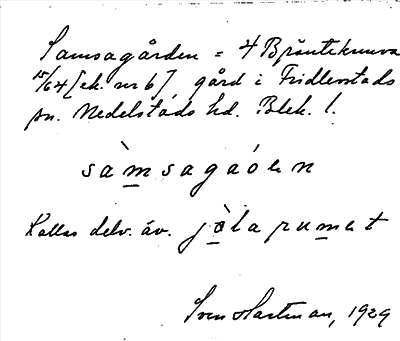 Samsagården = 4 Bräntekuuva
15/64 [ek. nr 6], gård i Fridlevstads
sn. Medelstads hd. Blek. l.
sàmsagáðen
Kallas delv. äv. jòlarumet
Sven Hartman, 1929